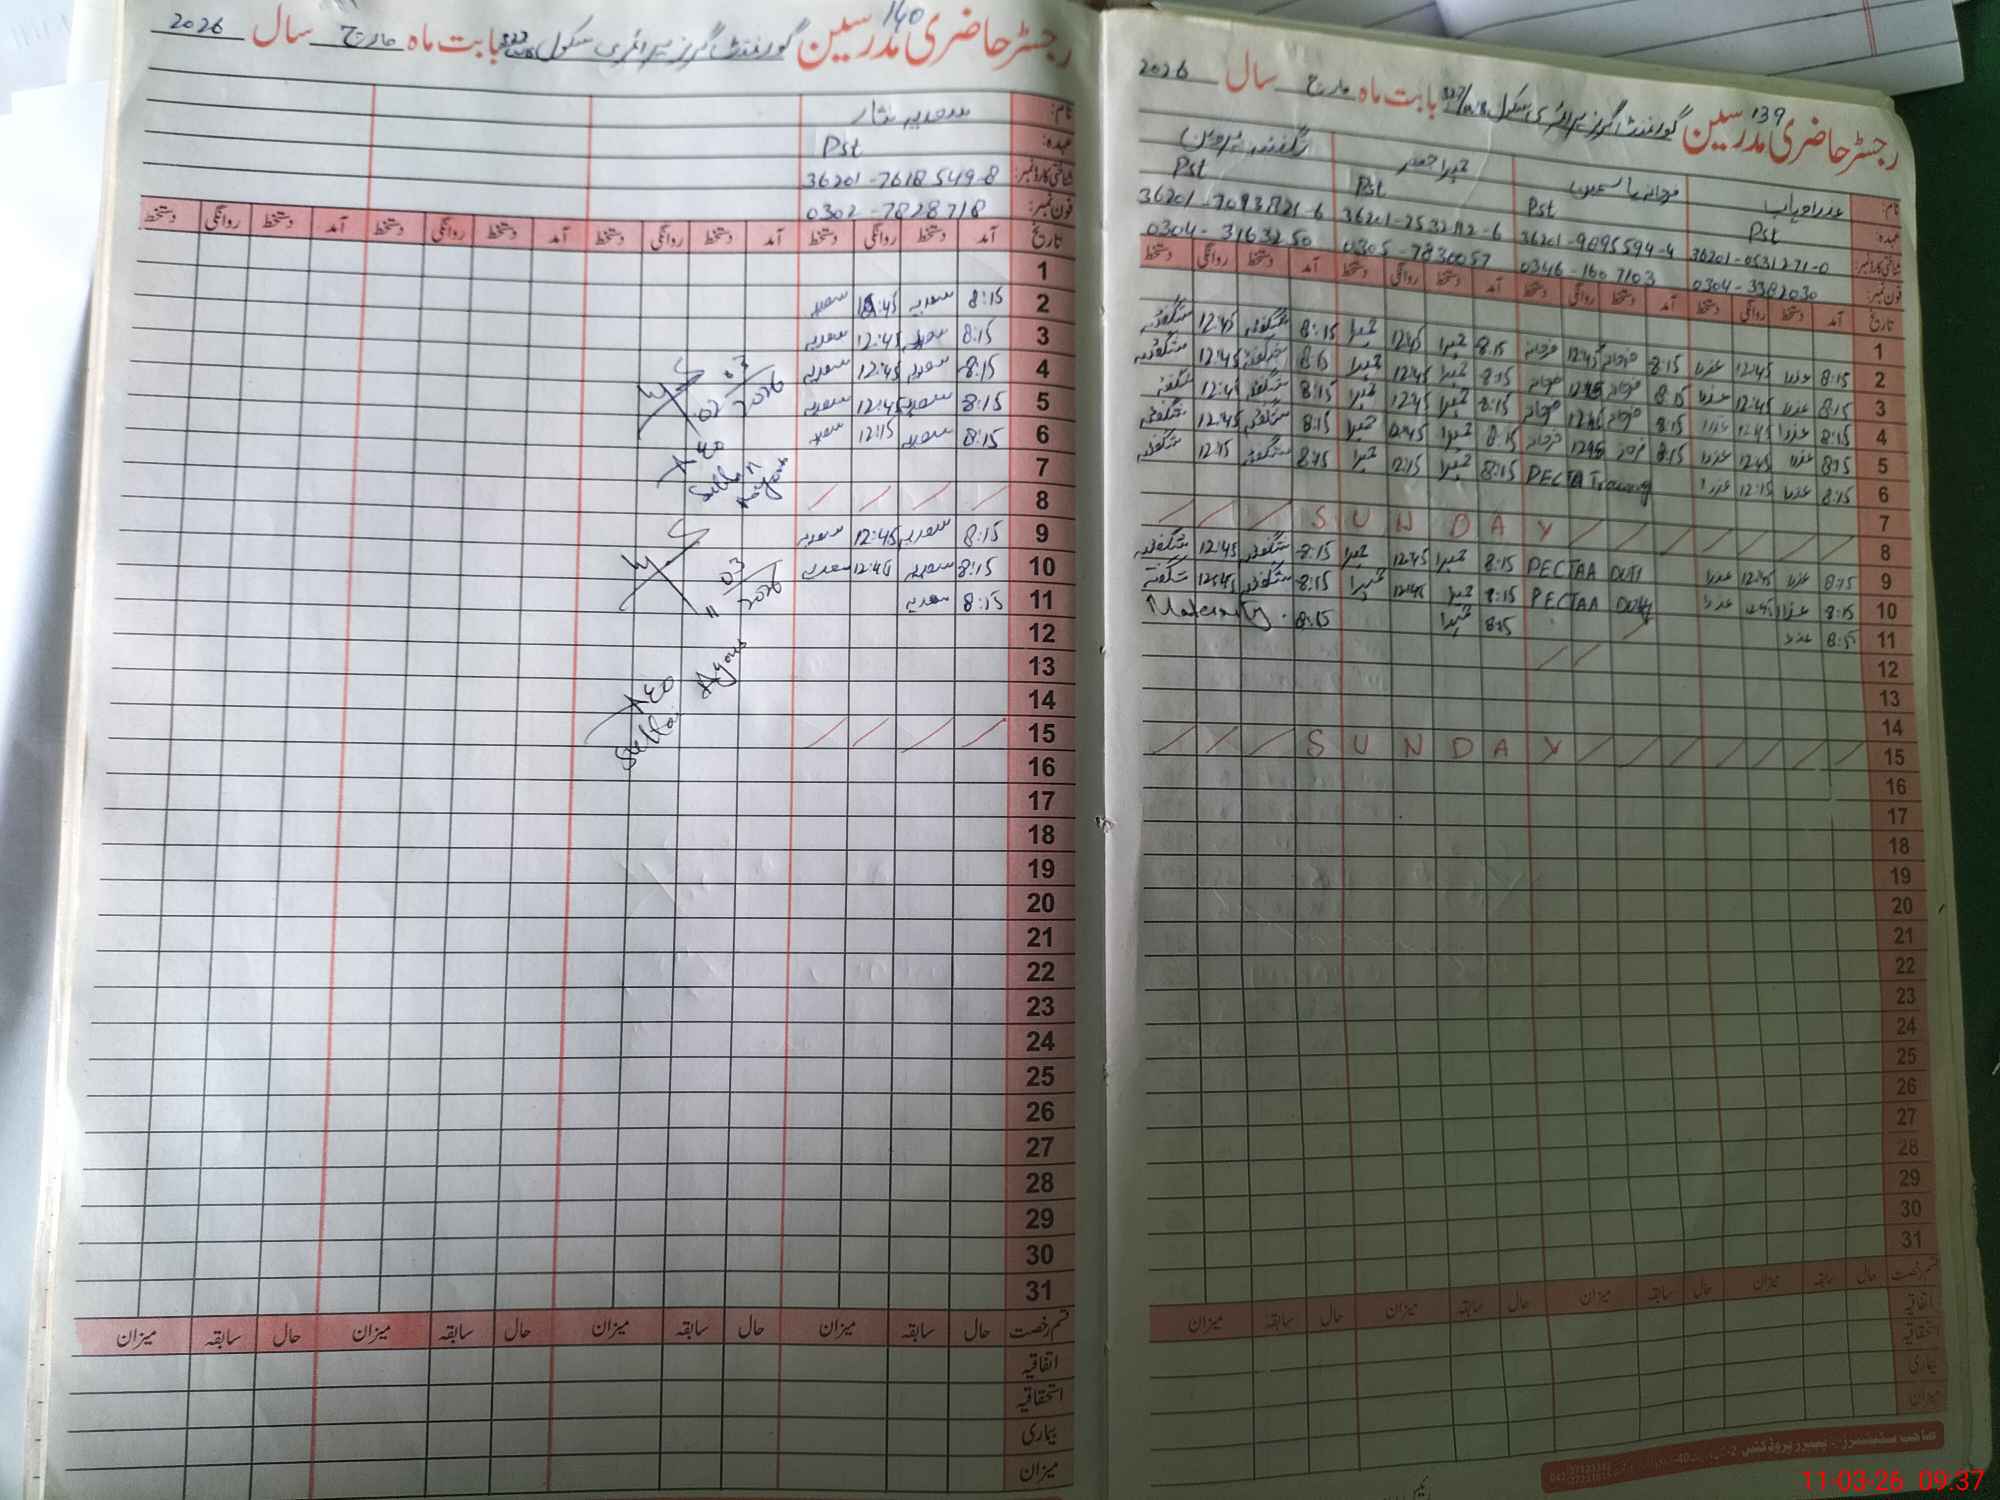 140
رجسٹر حاضری مدرسین گورنمنٹ گرلز پرائمری سکول بابت ماہ مارچ سال 2026
نام: سعدیہ نثار
عہدہ: Pst
شناختی کارڈ نمبر: 36201-7618549-8
فون نمبر: 0302-7828718
تاریخ آمد دستخط روانگی دستخط آمد دستخط روانگی دستخط آمد دستخط روانگی دستخط آمد دستخط روانگی دستخط
1
2 8:15 سعدیہ 12:45 سعدیہ
3 8:15 سعدیہ 12:45 سعدیہ
4 8:15 سعدیہ 12:45 سعدیہ
5 8:15 سعدیہ 12:45 سعدیہ
6 8:15 سعدیہ 12:15 سعدیہ
7
8
9 8:15 سعدیہ 12:45 سعدیہ
10 8:15 سعدیہ 12:45 سعدیہ
11 8:15 سعدیہ
12
13
14
15
16
17
18
19
20
21
22
23
24
25
26
27
28
29
30
31
02 03/2026
AEO
11 03/2026
AEO
قسم رخصت حال سابقہ میزان حال سابقہ میزان حال سابقہ میزان حال سابقہ میزان
اتفاقیہ
استحقاقیہ
بیماری
میزان
139
رجسٹر حاضری مدرسین گورنمنٹ گرلز پرائمری سکول بابت ماہ مارچ سال 2026
نام: عذرا رباب فرزانہ یاسمین حمیرا جعفر شگفتہ پروین
عہدہ: Pst Pst Pst Pst
شناختی کارڈ نمبر: 36201-0531271-0 36201-9895594-4 36201-2532112-6 36201-7093821-6
فون نمبر: 0304-3382030 0346-1607103 0305-7830057 0304-3163250
تاریخ آمد دستخط روانگی دستخط آمد دستخط روانگی دستخط آمد دستخط روانگی دستخط آمد دستخط روانگی دستخط
1
2 8:15 عذرا 12:45 عذرا 8:15 فرزانہ 12:45 فرزانہ 8:15 حمیرا 12:45 حمیرا 8:15 شگفتہ 12:45 شگفتہ
3 8:15 عذرا 12:45 عذرا 8:15 فرزانہ 12:45 فرزانہ 8:15 حمیرا 12:45 حمیرا 8:15 شگفتہ 12:45 شگفتہ
4 8:15 عذرا 12:45 عذرا 8:15 فرزانہ 12:45 فرزانہ 8:15 حمیرا 12:45 حمیرا 8:15 شگفتہ 12:45 شگفتہ
5 8:15 عذرا 12:45 عذرا 8:15 فرزانہ 12:45 فرزانہ 8:15 حمیرا 12:45 حمیرا 8:15 شگفتہ 12:45 شگفتہ
6 8:15 عذرا 12:15 عذرا PECTA Training 8:15 حمیرا 12:15 حمیرا 8:15 شگفتہ 12:15 شگفتہ
7
8 SUNDAY
9 8:15 عذرا 12:45 عذرا PECTAA DUTY 8:15 حمیرا 12:45 حمیرا 8:15 شگفتہ 12:45 شگفتہ
10 8:15 عذرا 12:45 عذرا PECTAA Duty 8:15 حمیرا 12:45 حمیرا 8:15 شگفتہ 12:45 شگفتہ
11 8:15 عذرا 8:15 حمیرا 8:15 Maternity
12
13
14
15 SUNDAY
16
17
18
19
20
21
22
23
24
25
26
27
28
29
30
31
قسم رخصت حال سابقہ میزان حال سابقہ میزان حال سابقہ میزان
اتفاقیہ
استحقاقیہ
بیماری
میزان
11-03-26 09:37